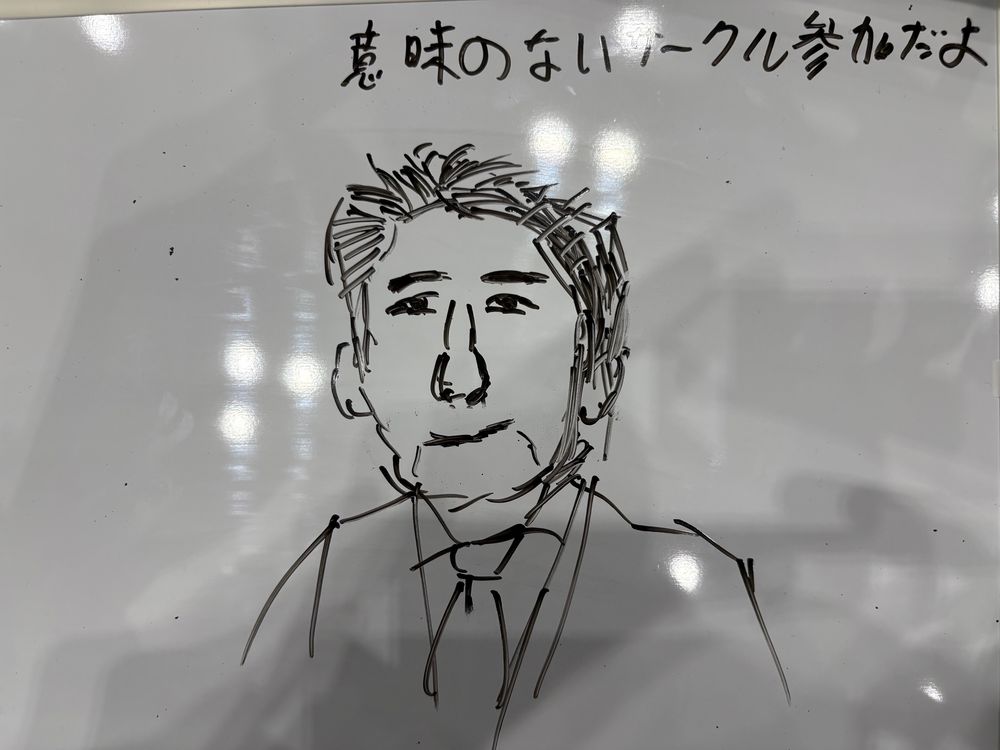 意味のないサークル参加だよ